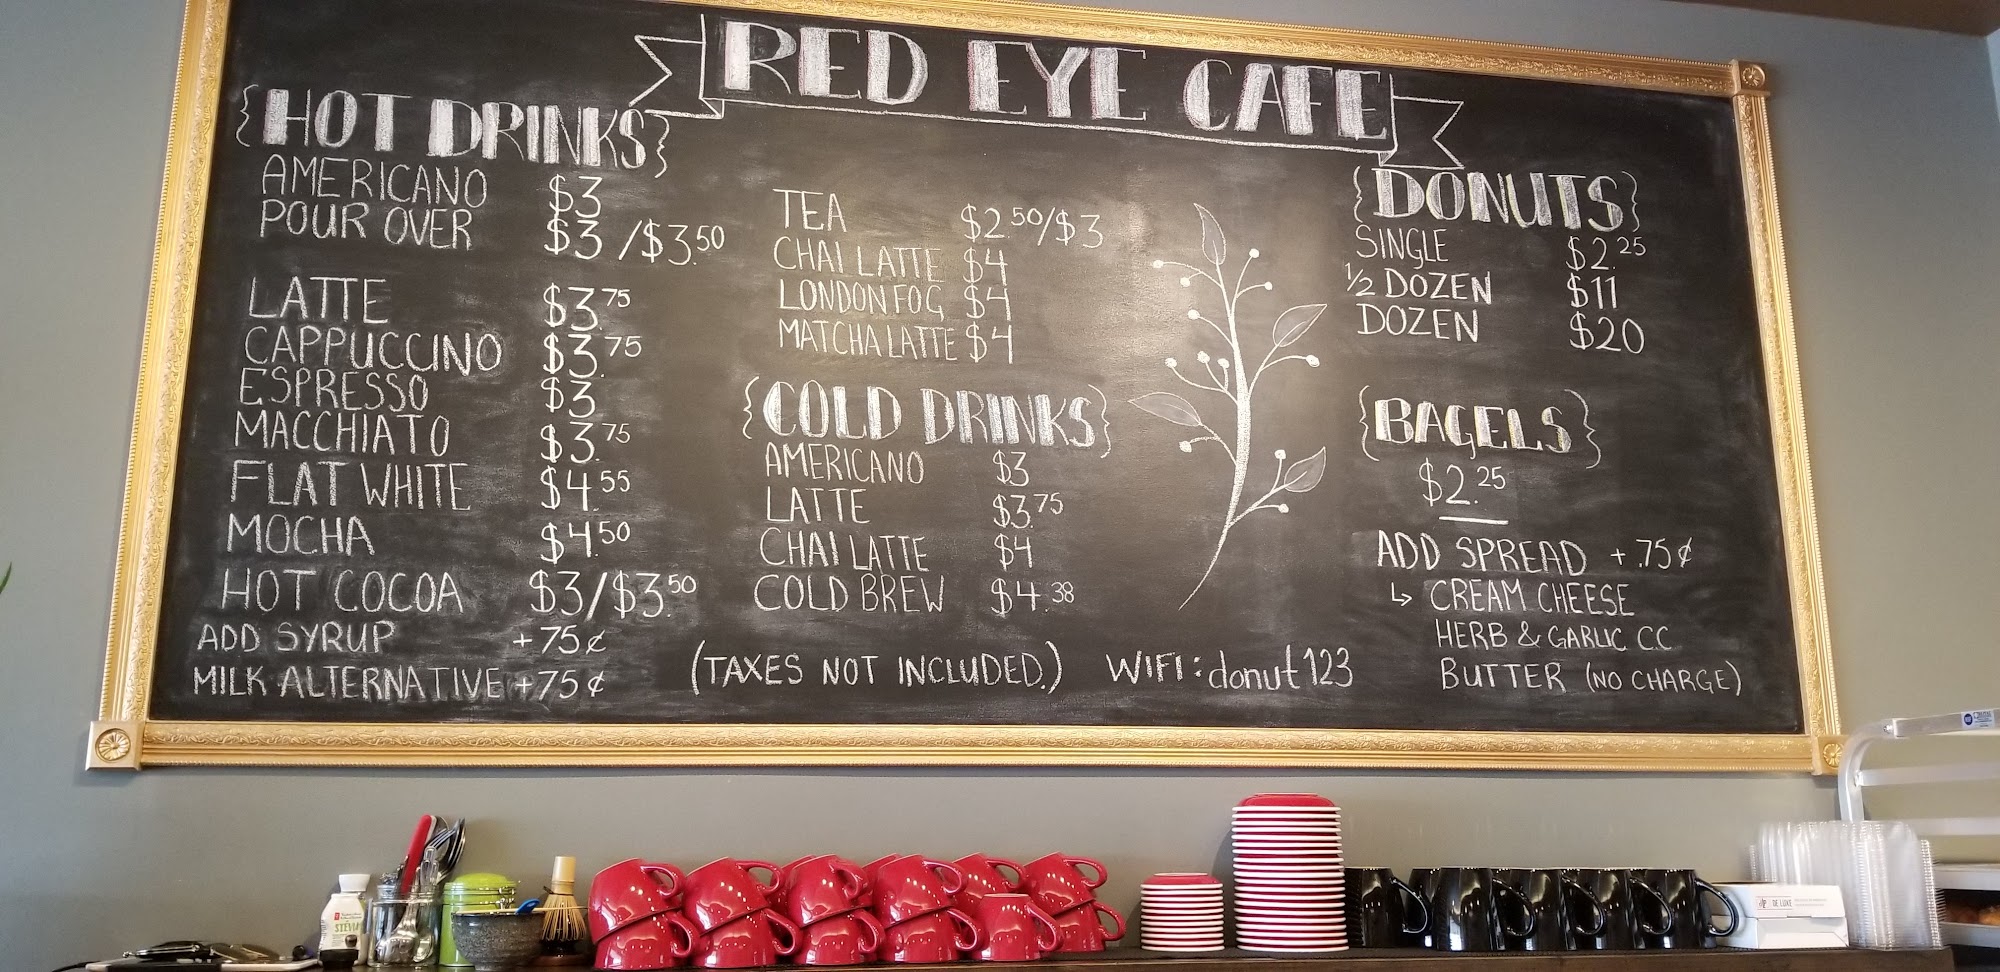 RED EYE CAFE
{HOT DRINKS}
AMERICANO $3
POUR OVER $3/$3.50
LATTE $3.75
CAPPUCCINO $3.75
ESPRESSO $3
MACCHIATO $3.75
FLAT WHITE $4.55
MOCHA $4.50
HOT COCOA $3/$3.50
ADD SYRUP +75¢
MILK ALTERNATIVE +75¢
TEA $2.50/$3
CHAI LATTE $4
LONDON FOG $4
MATCHA LATTE $4
{COLD DRINKS}
AMERICANO $3
LATTE $3.75
CHAI LATTE $4
COLD BREW $4.38
(TAXES NOT INCLUDED.)
WIFI: donut123
{DONUTS}
SINGLE $2.25
1/2 DOZEN $11
DOZEN $20
{BAGELS}
$2.25
ADD SPREAD +.75¢
↳ CREAM CHEESE
HERB & GARLIC C.C
BUTTER (NO CHARGE)
STEVIA
DE LUXE